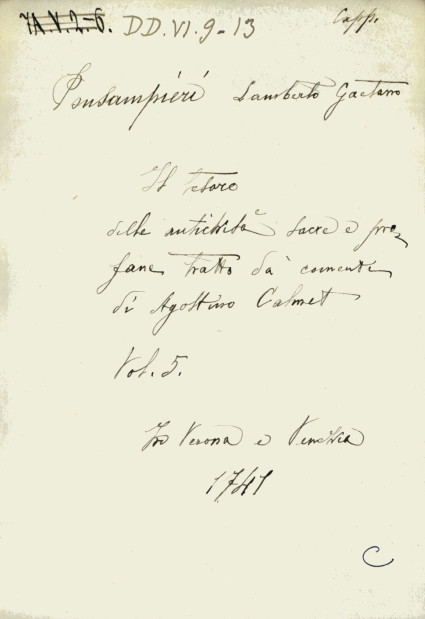 7A.V.2-6. DD.VI.9-13 Capp.
Ponsampieri Lamberto Gaetano
Il tesoro
delle antichità sacre e pro-
fane tratto da' comenti
di Agostino Calmet
Vol. 5.
In Verona e Venezia
1741
C